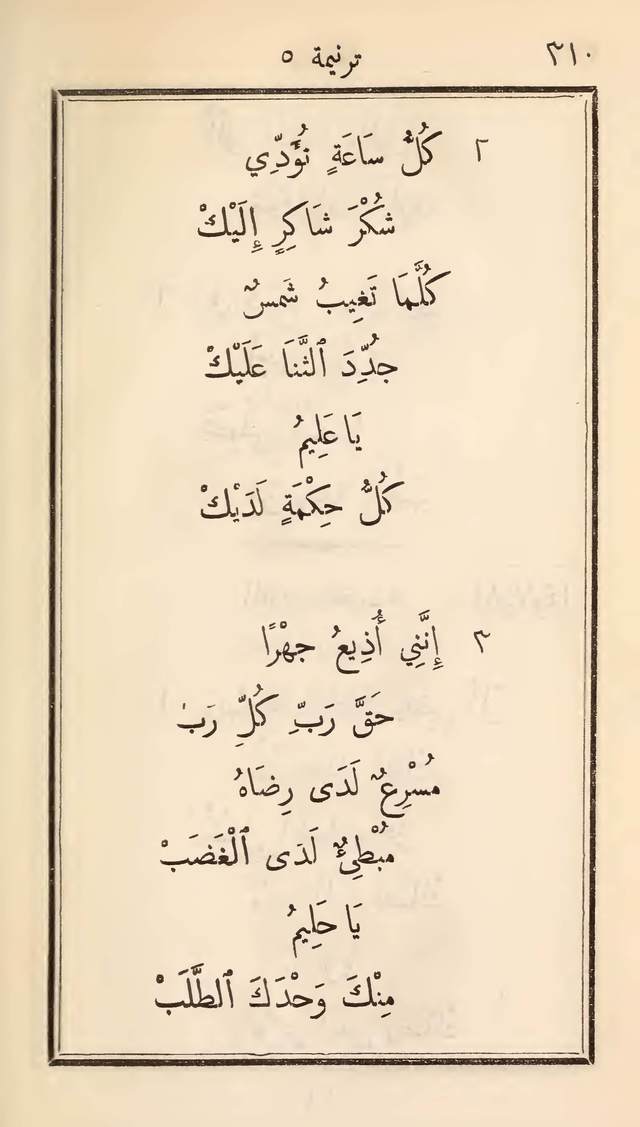 ٣١٠ ترنيمة ٥
٢ كُلُّ سَاعَةٍ نُؤَدِّي
شُكْرَ شَاكِرٍ إِلَيْكْ
كُلَّمَا تَغِيبُ شَمسٌ
جدِّدَ ٱلثَّنَا عَلَيْكْ
يَا عَلِيمُ
كُلُّ حِكْمَةٍ لَدَيْكْ
٣ إِنَّنِي أُذِيعُ جهْرًا
حَقَّ رَبِّ كُلِّ رَبْ
مُسْرِعٌ لَدَى رِضَاهُ
مُبْطِئٌ لَدَى ٱلْغَضَبْ
يَا حَلِيمُ
مِنْكَ وَحْدَكَ ٱلطَّلَبْ